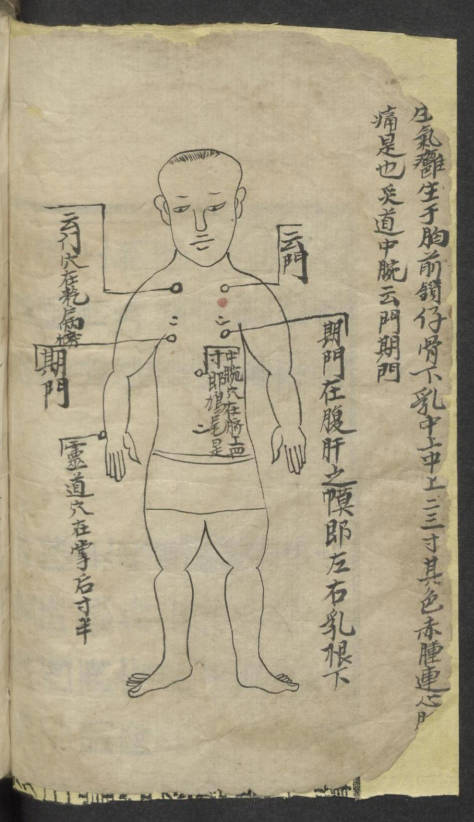 生氣癰生于胸前鎖仔骨下乳中上中上二三寸其色赤腫連心
痛是也灸道中腕云門期門
云門
期門在腹肝之幙即左右乳根下
中腕穴在臍上四
寸即鳩尾是
云门穴在乾肩
期門
靈道穴在掌后寸半